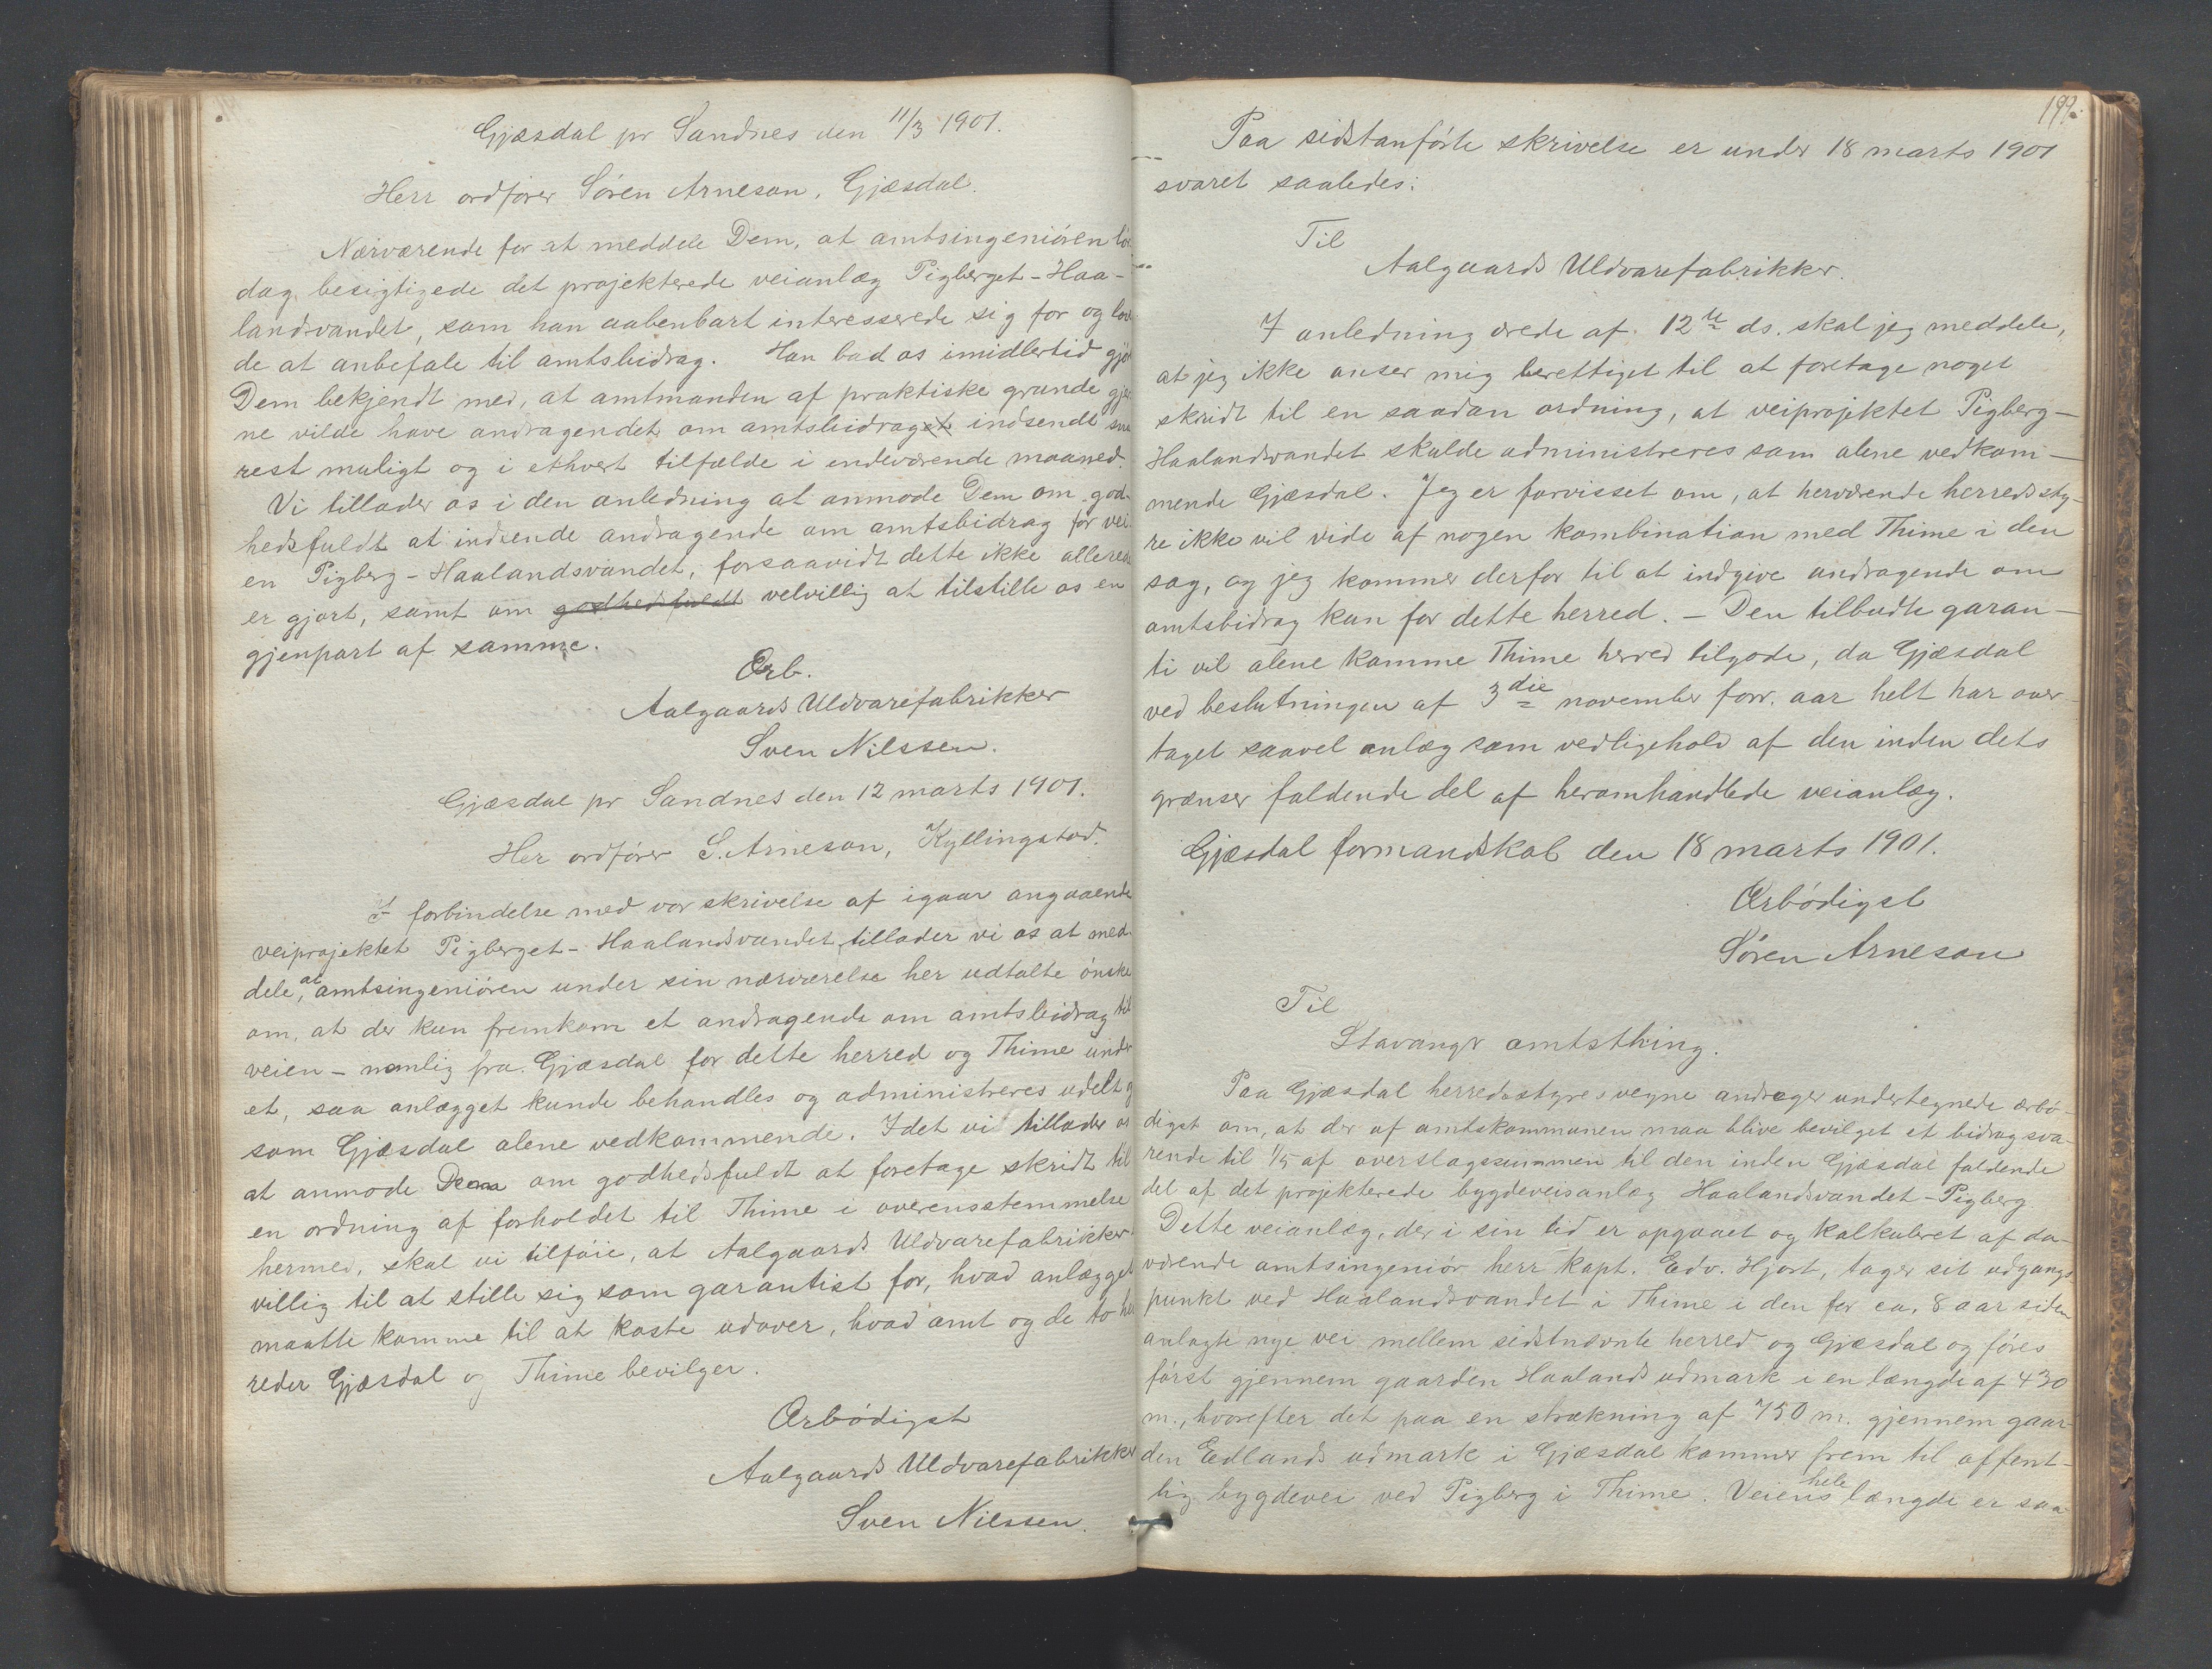 Gjæsdal pr Sandnes den 11/3 1901.
Herr ordfører Søren Arneson, Gjæsdal.
Nærværende for at meddele Dem, at amtsingeniören lör
dag besigtigede det projekterede veianlæg Pigberget-Haa-
landsvandet, som han aabenbart interesserede sig for og lov
de at anbefale til amtsbidrag. Han bad os imidlertid gjör
Dem bekjendt med, at amtmanden af praktiske grunde gjer
ne vilde have andragendet om amtsbidraget indsendt sna
rest muligt og i ethvert tilfælde i indeværende maaned.
Vi tillader os i den anledning at anmode Dem om god-
hedsfuldt at indsende andragende om amtsbidrag for vei
en Pigberg-Haalandsvandet, forsaavidt dette ikke allerede
er gjort, samt om godhedsfuldt velvillig at tilstille os en
gjenpart af samme.
Ærb.
Aalgaards Uldvarefabrikker
Sven Nilssen.
Gjæsdal pr Sandnes den 12 marts 1901.
Her ordfører S. Arneson, Kyllingstad.
I forbindelse med vor skrivelse af igaar angaaende
veiprojektet Pigberget-Haalandsvandet tillader vi os at med-
dele, at amtsingeniören under sin nærværelse her udtalte önske
om, at der kun fremkom et andragende om amtsbidrag til
veien - nemlig fra Gjæsdal for dette herred og Thime under
et, saa anlægget kunde behandles og administreres udelt og
som Gjæsdal alene vedkommende. Idet vi tillader os
at anmode Dem om godhedsfuldt at foretage skridt til
en ordning af forholdet til Thime i overensstemmelse
hermed, skal vi tilföie, at Aalgaards Uldvarefabrikker
villig til at stille sig som garantist for, hvad anlægget
maatte komme til at koste udover, hvad amt og de to her
reder Gjæsdal og Thime bevilger.
Ærbödigst
Aalgaards Uldvarefabrikker
Sven Nilssen.
199.
Paa sidstanförte skrivelse er under 18 marts 1901
svaret saaledes:
Til
Aalgaards Uldvarefabrikker.
I anledning ærede af 12te ds. skal jeg meddele,
at jeg ikke anser mig berettiget til at foretage noget
skridt til en saadan ordning, at veiprojektet Pigberg-
Haalandsvandet skulde administreres som alene vedkom-
mende Gjæsdal. Jeg er forvisset om, at herværende herredssty-
re ikke vil vide af nogen kombination med Thime i den
sag, og jeg kommer derfor til at indgive andragende om
amtsbidrag kun for dette herred. - Den tilbudte garan-
ti vil alene komme Thime herred tilgode, da Gjæsdal
ved beslutningen af 3die november forr. aar helt har over-
taget saavel anlæg som vedligehold af den inden dets
grænser faldende del af heromhandlede veianlæg.
Gjæsdal formandskab den 18 marts 1901.
Ærbödigst
Sören Arneson
Til
Stavanger amtsthing.
Paa Gjæsdal herredsstyres vegne andrager undertegnede ærbö-
digst om, at der af amtskommunen maa blive bevilget et bidrag sva-
rende til 1/5 af overslagssummen til den inden Gjæsdal faldende
del af det projekterede bygdeveisanlæg Haalandsvandet-Pigberg.
Dette veianlæg, der i sin tid er opgaaet og kalkuleret af da-
værende amtsingeniör herr kapt. Edv. Hjort, tager sit udgangs-
punkt ved Haalandsvandet i Thime i den for ca. 8 aar siden
anlagte nye vei mellem sidstnævnte herred og Gjæsdal og föres
först gjennem gaarden Haalands udmark i en længde af 430
m., hvorefter det paa en strækning af 750 m. gjennem gaar-
den Edlands udmark i Gjæsdal kommer frem til offent-
lig bygdevei ved Pigberg i Thime. Veiens hele længde er saa